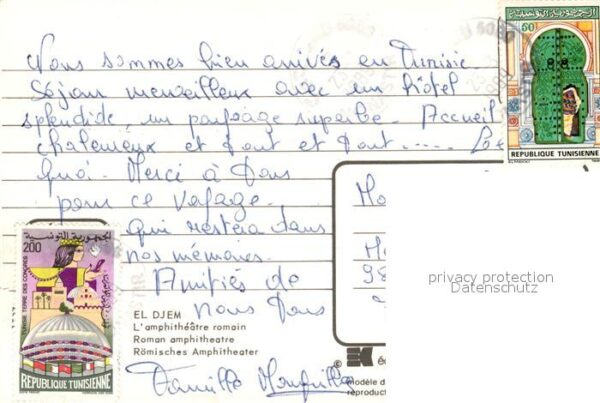 Nous sommes bien arrivés en Tunisie.
Séjour merveilleux avec un hôtel
splendide, un paysage superbe. Accueil
chaleureux et tout et tout.....
quoi. Merci à tous
pour ce voyage
qui restera dans
nos mémoires.
Amitiés de
nous tous
Famille
EL DJEM
L'amphithéâtre romain
Roman amphitheatre
Römisches Amphitheater
modèle d
reproduct
privacy protection
Datenschutz
الجمهورية التونسية
50
REPUBLIQUE TUNISIENNE
الجمهورية التونسية
200
TUNISIE TERRE DES CONGRES
REPUBLIQUE TUNISIENNE